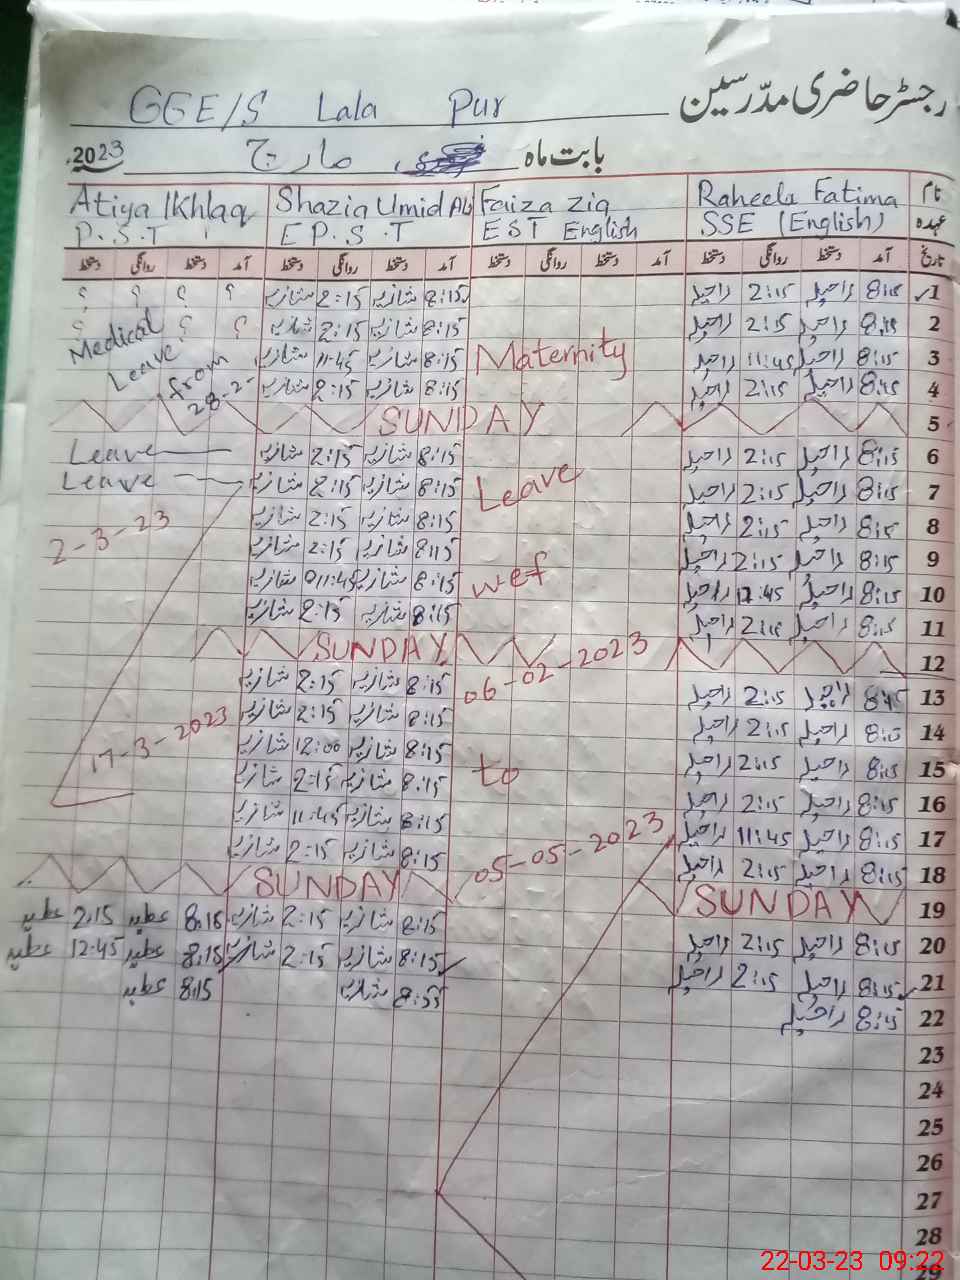 رجسٹر حاضری مدّرسین
GGE/S Lala Pur
بابت ماہ مارچ 2023
نام Raheela Fatima Faiza Zia Shazia Umid Ali Atiya Ikhlaq
عہدہ SSE (English) EST English E P.S.T P.S.T
تاریخ آمد دستخط روانگی دستخط آمد دستخط روانگی دستخط آمد دستخط روانگی دستخط آمد دستخط روانگی دستخط
1 8:15 راحیلہ 2:15 راحیلہ 8:15 شازیہ 2:15 شازیہ ؟ ؟ ؟ ؟
2 8:15 راحیلہ 2:15 راحیلہ 8:15 شازیہ 2:15 شازیہ ؟ ؟ ؟
Medical Leave from 28-2-
3 8:15 راحیلہ 11:45 راحیلہ Maternity 8:15 شازیہ 11:45 شازیہ
4 8:15 راحیلہ 2:15 راحیلہ 8:15 شازیہ 2:15 شازیہ
5 SUNDAY
6 8:15 راحیلہ 2:15 راحیلہ 8:15 شازیہ 2:15 شازیہ Leave
7 8:15 راحیلہ 2:15 راحیلہ Leave 8:15 شازیہ 2:15 شازیہ Leave
8 8:15 راحیلہ 2:15 راحیلہ 8:15 شازیہ 2:15 شازیہ 2-3-23
9 8:15 راحیلہ 2:15 راحیلہ 8:15 شازیہ 2:15 شازیہ
10 8:15 راحیلہ 11:45 راحیلہ wef 8:15 شازیہ 11:45 شازیہ
11 8:15 راحیلہ 2:15 راحیلہ 8:15 شازیہ 2:15 شازیہ
12 SUNDAY
06-02-2023
13 8:15 راحیلہ 2:15 راحیلہ 8:15 شازیہ 2:15 شازیہ
14 8:15 راحیلہ 2:15 راحیلہ 8:15 شازیہ 2:15 شازیہ 17-3-2023
15 8:15 راحیلہ 2:15 راحیلہ to 8:15 شازیہ 12:00 شازیہ
16 8:15 راحیلہ 2:15 راحیلہ 8:15 شازیہ 2:15 شازیہ
17 8:15 راحیلہ 11:45 راحیلہ 05-05-2023 8:15 شازیہ 11:45 شازیہ
18 8:15 راحیلہ 2:15 راحیلہ 8:15 شازیہ 2:15 شازیہ
19 SUNDAY SUNDAY
20 8:15 راحیلہ 2:15 راحیلہ 8:15 شازیہ 2:15 شازیہ 8:15 عطیہ 2:15 عطیہ
21 8:15 راحیلہ 2:15 راحیلہ 8:15 شازیہ 2:15 شازیہ 8:15 عطیہ 12:45 عطیہ
22 8:15 راحیلہ 8:55 شازیہ 8:15 عطیہ
23
24
25
26
27
28
29
22-03-23 09:22